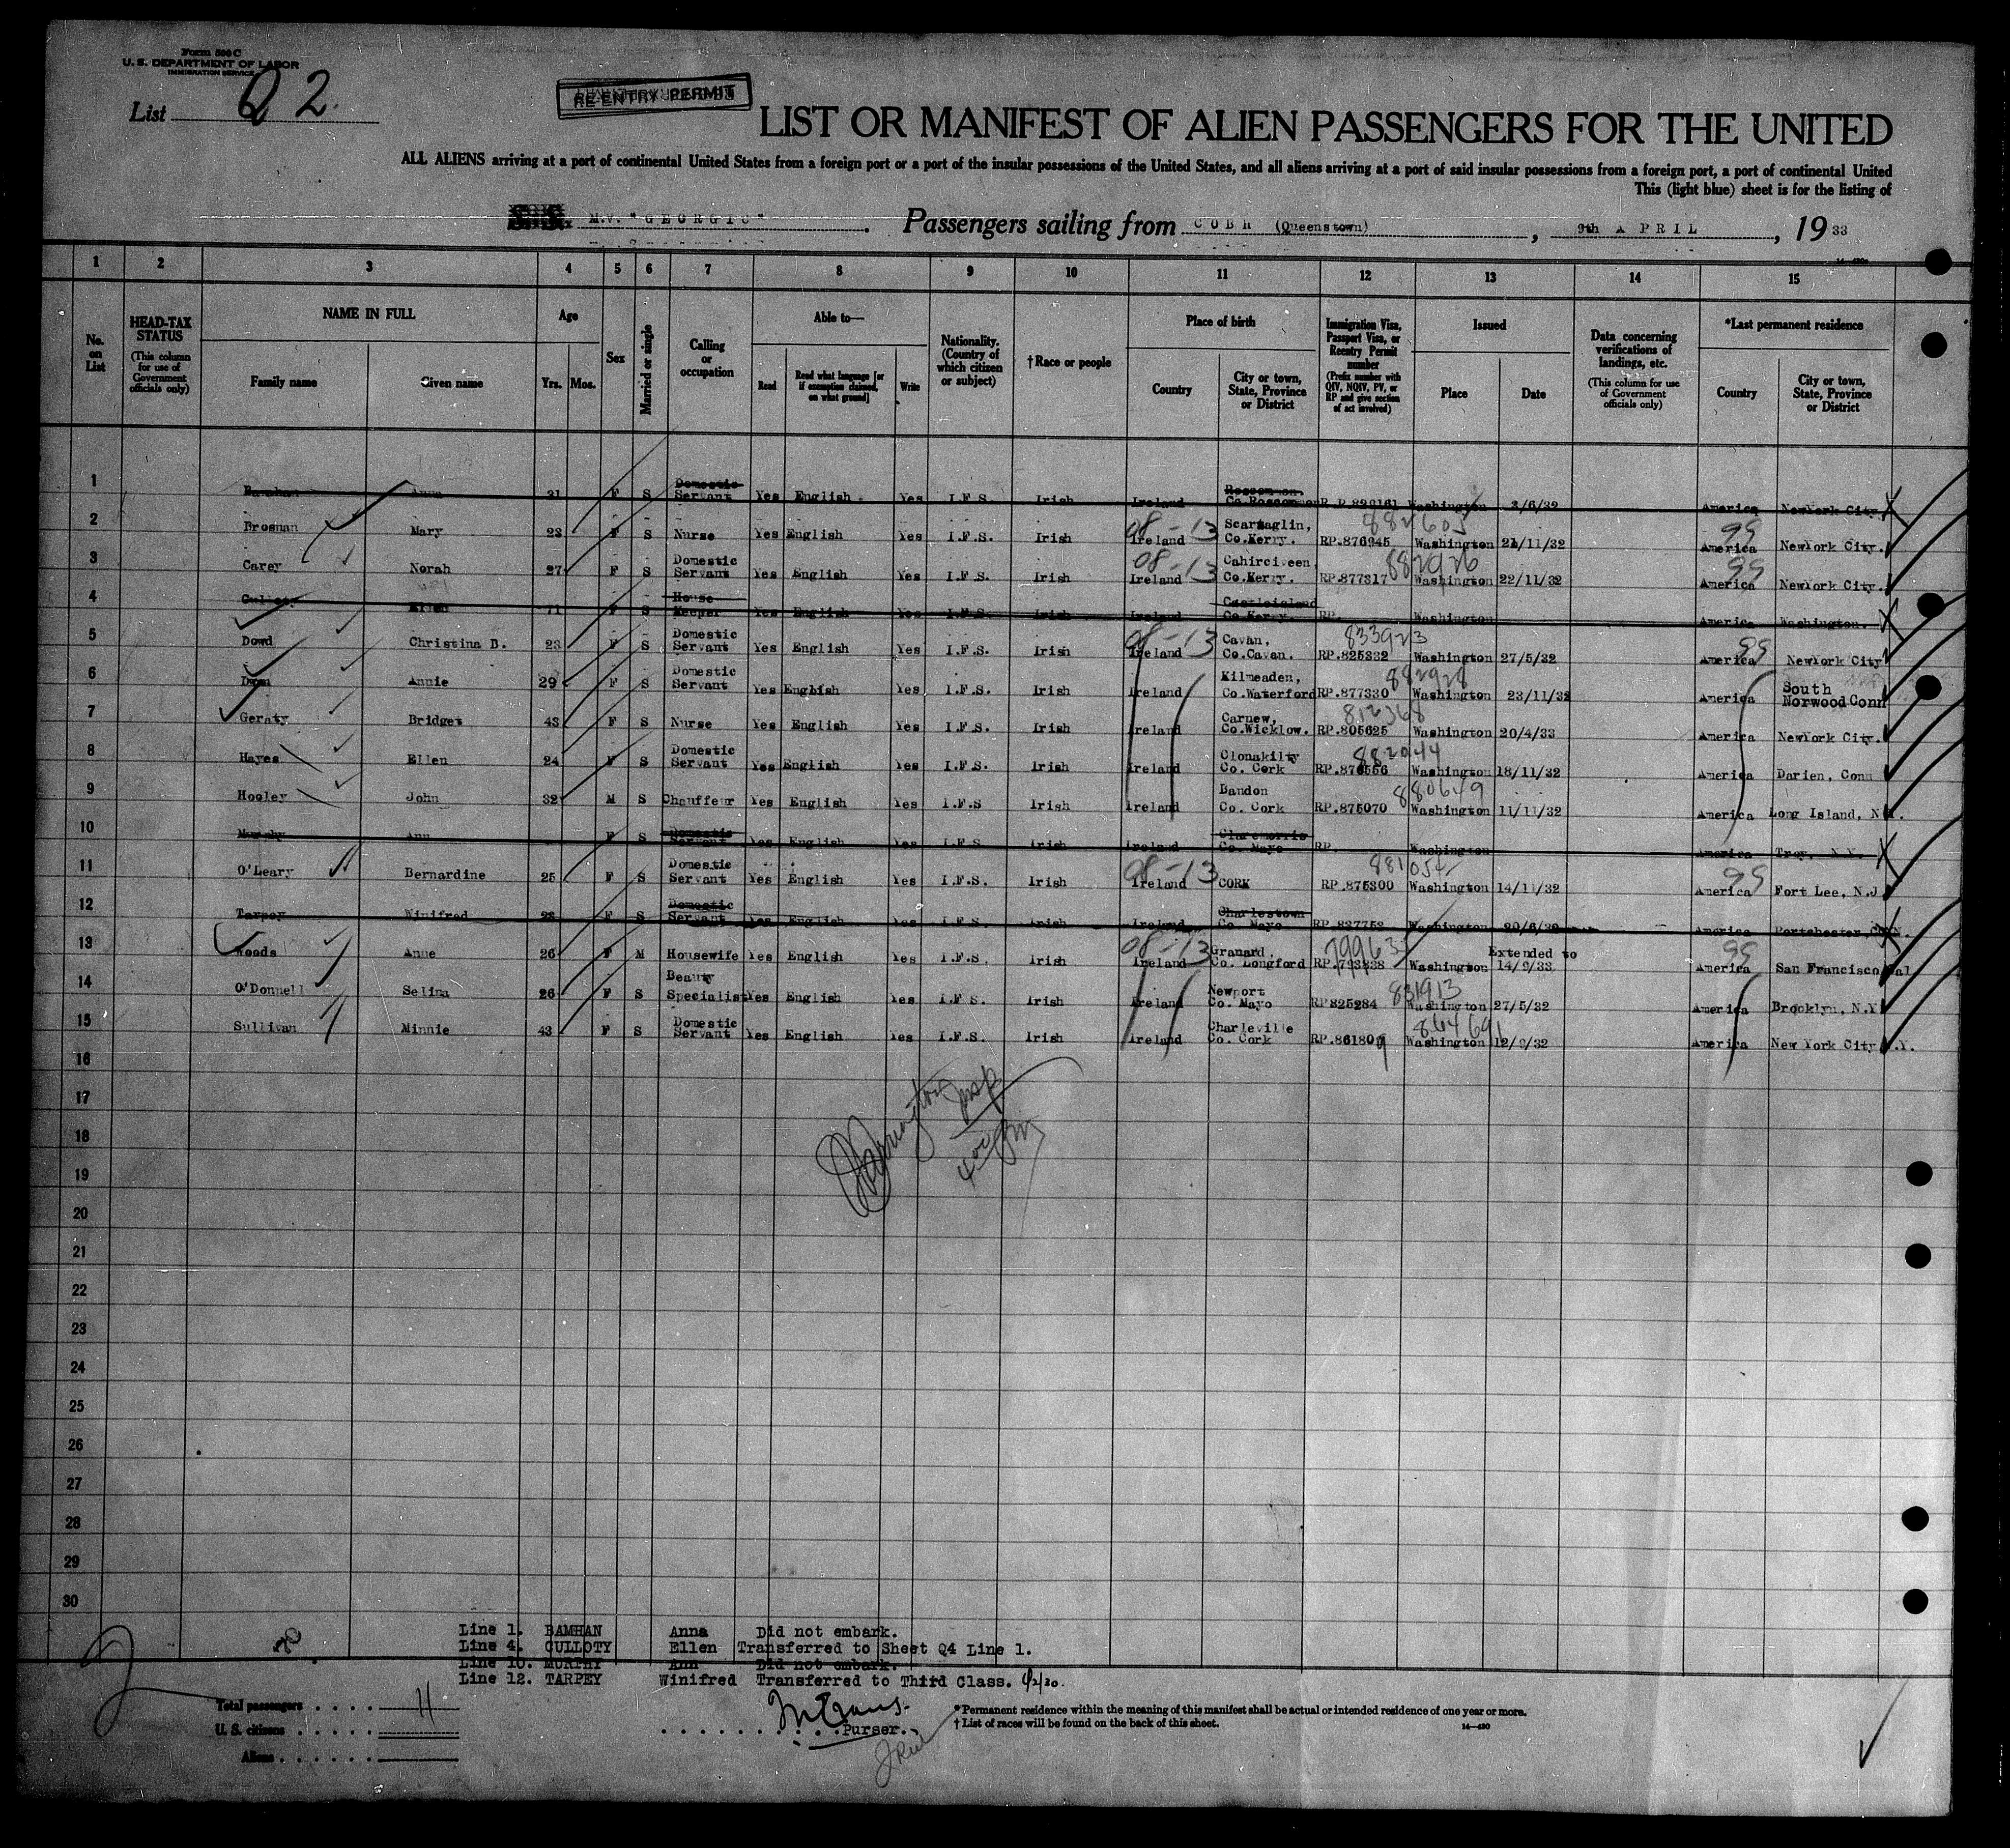 Form 500 C
U. S. DEPARTMENT OF LABOR
IMMIGRATION SERVICE
List Q 2.
RE-ENTRY PERMIT
LIST OR MANIFEST OF ALIEN PASSENGERS FOR THE UNITED
ALL ALIENS arriving at a port of continental United States from a foreign port or a port of the insular possessions of the United States, and all aliens arriving at a port of said insular possessions from a foreign port, a port of continental United
This (light blue) sheet is for the listing of
M.V. "GEORGIC" . Passengers sailing from COBH (Queenstown) , 9th APRIL , 19 33
1 2 3 4 5 6 7 8 9 10 11 12 13 14 15
No. on List
HEAD-TAX STATUS (This column for use of Government officials only)
NAME IN FULL Family name Given name
Age Yrs. Mos.
Sex
Married or single
Calling or occupation
Able to— Read Read what language [or if exemption claimed, on what ground] Write
Nationality. (Country of which citizen or subject)
†Race or people
Place of birth Country City or town, State, Province or District
Immigration Visa, Passport Visa, or Reentry Permit number (Prefix number with QIV, NQIV, PV, or RP and give section of act involved)
Issued Place Date
Data concerning verifications of landings, etc. (This column for use of Government officials only)
*Last permanent residence Country City or town, State, Province or District
1 Anna 31 F S Domestic Servant Yes English Yes I.F.S. Irish Ireland Co.Roscommon Washington 3/6/32 America NewYork City
2 Brosnan Mary 23 F S Nurse Yes English Yes I.F.S. Irish Ireland 08-13 Scartaglin, Co.Kerry. RP.876945 882605 Washington 21/11/32 99 America NewYork City.
3 Carey Norah 27 F S Domestic Servant Yes English Yes I.F.S. Irish Ireland 08-13 Cahirciveen, Co.Kerry. RP.877317 882926 Washington 22/11/32 99 America NewYork City.
4 Culloty Ellen 71 F S House Keeper Yes English Yes I.F.S. Irish Ireland Castleisland Co.Kerry. RP. Washington America Washington.
5 Dowd Christina B. 23 F S Domestic Servant Yes English Yes I.F.S. Irish Ireland 08-13 Cavan, Co.Cavan. RP.825332 833923 Washington 27/5/32 99 America NewYork City
6 Annie 29 F S Domestic Servant Yes English Yes I.F.S. Irish Ireland Kilmeaden, Co.Waterford RP.877330 882928 Washington 23/11/32 America South Norwood Conn
7 Geraty Bridget 43 F S Nurse Yes English Yes I.F.S. Irish Ireland Carnew, Co.Wicklow. RP.805625 812368 Washington 20/4/33 America NewYork City.
8 Hayes Ellen 24 F S Domestic Servant Yes English Yes I.F.S. Irish Ireland Clonakilty Co. Cork 882044 Washington 18/11/32 America Darien, Conn
9 Hooley John 32 M S Chauffeur Yes English Yes I.F.S Irish Ireland Bandon Co. Cork RP.875070 880649 Washington 11/11/32 America Long Island, N.Y.
10 Murphy Ann F S Domestic Servant Yes English Yes I.F.S Irish Ireland Claremorris Co. Mayo RP. Washington America Troy, N.Y.
11 O'Leary Bernardine 25 F S Domestic Servant Yes English Yes I.F.S. Irish Ireland 08-13 CORK RP.875300 881054 Washington 14/11/32 99 America Fort Lee, N.J.
12 Tarpey Winifred 28 F S Domestic Servant Yes English Yes I.F.S. Irish Ireland Charlestown Co. Mayo RP.837753 Washington America Portchester
13 Woods Anne 26 F M Housewife Yes English Yes I.F.S. Irish Ireland 08-13 Granard, Co. Longford Washington Extended to 14/9/33 99 America San Francisco Cal
14 O'Donnell Selina 26 F S Beauty Specialist Yes English Yes I.F.S. Irish Ireland Newport Co. Mayo RP825284 831913 Washington 27/5/32 America Brooklyn, N.Y
15 Sullivan Minnie 43 F S Domestic Servant Yes English Yes I.F.S. Irish Ireland Charleville Co. Cork RP.861809 Washington 12/9/32 America New York City N.Y.
16
17
18
19
20
21
22
23
24
25
26
27
28
29
30
Line 1. BAMHAN Anna Did not embark.
Line 4. CULLOTY Ellen Transferred to Sheet Q4 Line 1.
Line 10. MURPHY Ann Did not embark.
Line 12. TARPEY Winifred Transferred to Third Class.
Total passengers . . . . 11
U. S. citizens . . . . .
Aliens . . . . . .
Purser.
*Permanent residence within the meaning of this manifest shall be actual or intended residence of one year or more.
†List of races will be found on the back of this sheet.
14—430